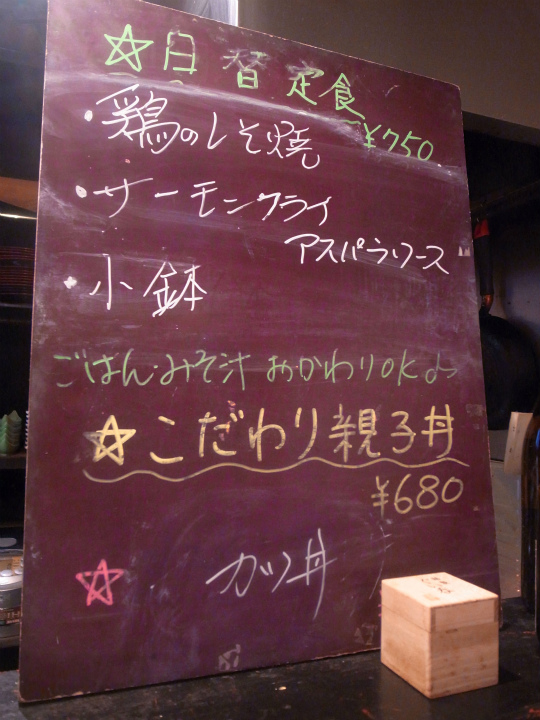 ☆日替定食
¥750
・鶏のしそ焼
・サーモンフライ
アスパラソース
・小鉢
ごはん・みそ汁 おかわりOK♪
☆こだわり親子丼
¥680
☆ カツ丼